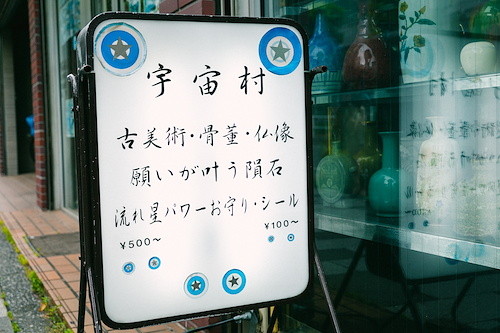 宇宙村
古美術・骨董・仏像
願いが叶う隕石
流れ星パワーお守り・シール
¥500〜
¥100〜